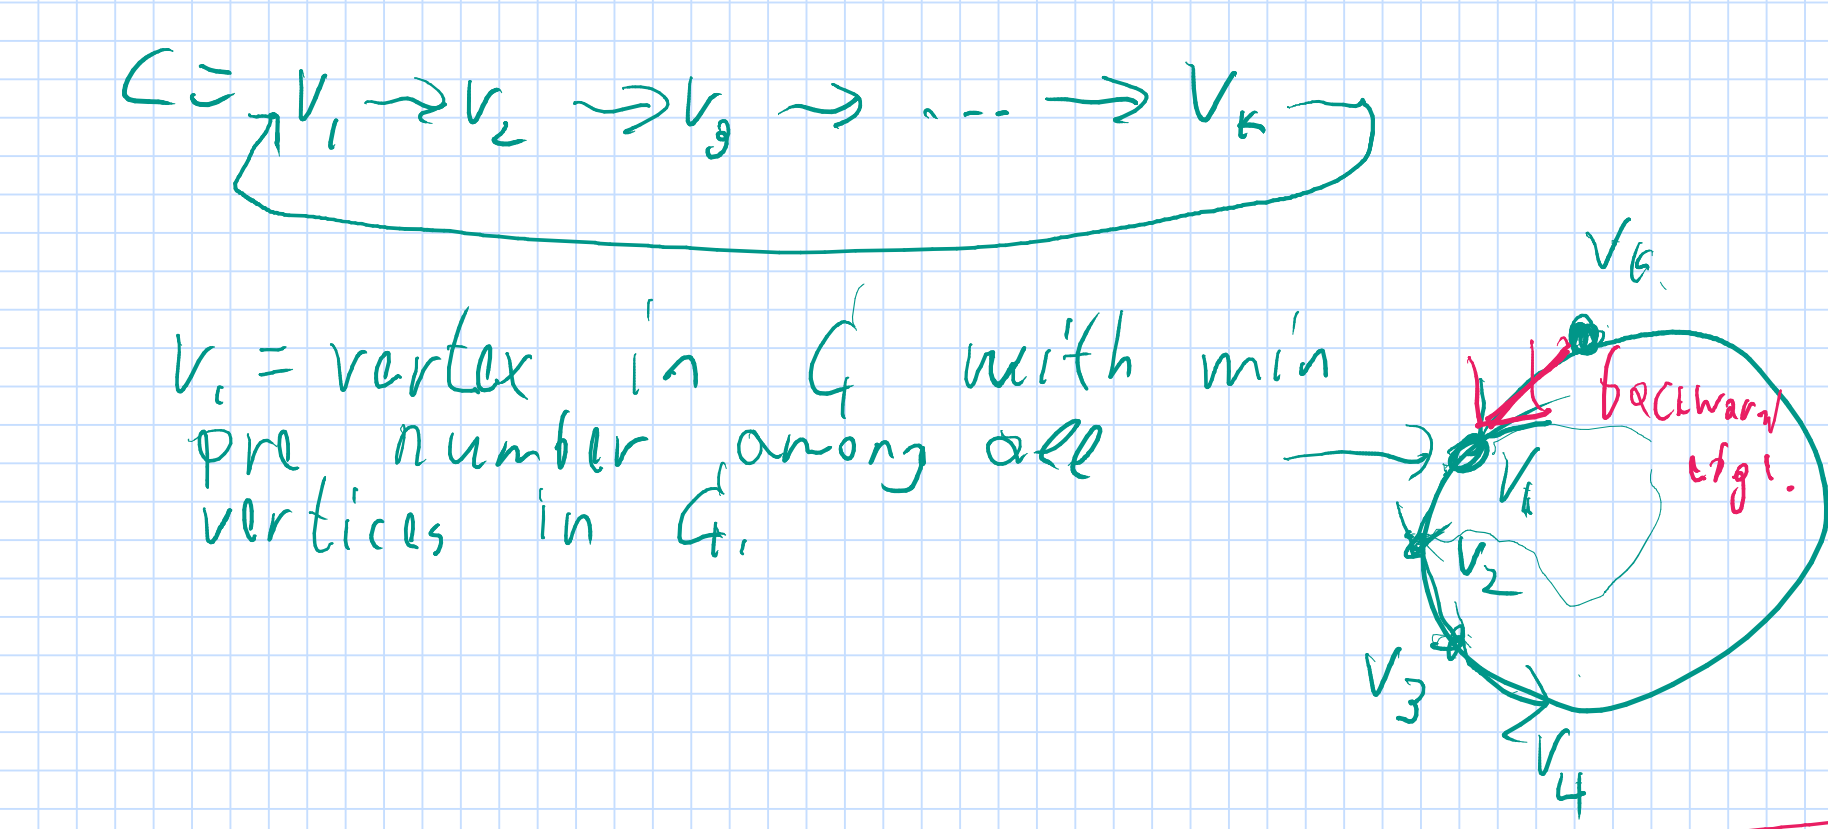 C = V₁ → V₂ → V₃ → .... → Vₖ
Vₖ
V₁ = vertex in C, with min
pre number among all
vertices in C,
backward
edge.
V₁
V₂
V₃
V₄